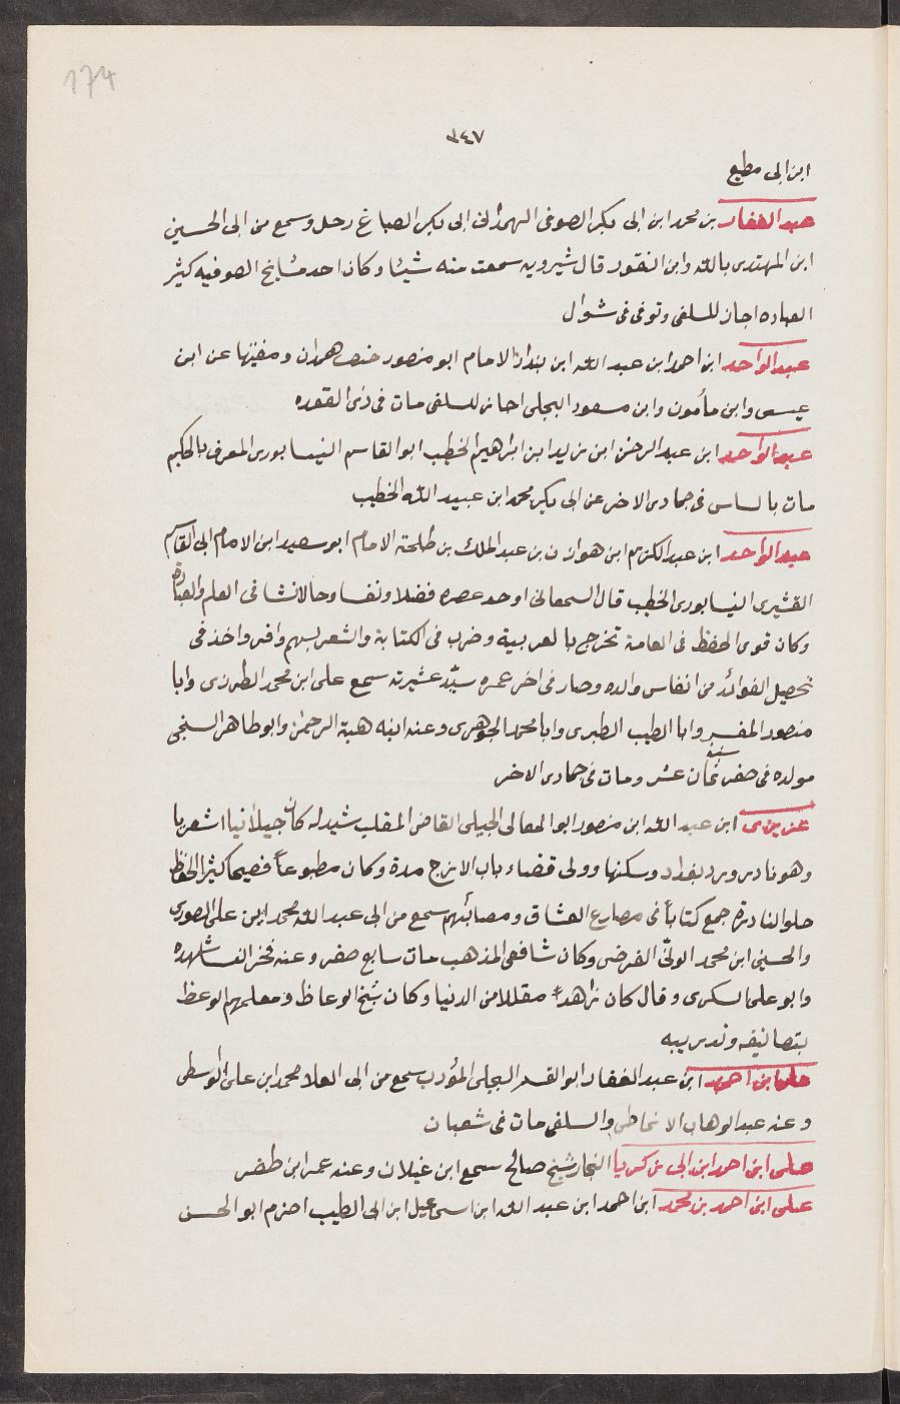 174
٣٤٧
ابن ابى مطيع
عبد الغفار بن محمد ابن ابى بكر الصوفى الهمذانى ابى بكر الصباغ رحل وسمع من ابى الحسين
ابن المهتدى بالله وابن النقور قال شيرويه سمعت منه شيئا وكان احد مشايخ الصوفيه كثير
العباده اجاز للسلفى وتوفى فى شوال
عبد الواحد ابن احمد ابن عبد الله ابن بندار الامام ابو منصور همدان ومفتيها عن ابن
عيسى وابن مأمون وابن مسعود البجلى اجاز للسلفى مات فى ذى القعده
عبد الواحد ابن عبد الرحمن ابن زيد ابن ابراهيم الخطيب ابو القاسم النيسابورى المعرف بالحكيم
مات بالساس فى جمادى الاخر عن ابى بكر محمد ابن عبيد الله الخطيب
عبد الواحد ابن عبد الكريم ابن هوازن بن عبد الملك بن طلحة الامام ابو سعيد ابن الامام ابى القاسم
القشيرى النيسابورى الخطيب قال السمعانى اوحد عصره فضلا ونفسا وحالا نشا فى العلم والعبادة
وكان قوى الحفظ فى العامة تخرج بالعربية وضرب فى الكتابة والشعر بسهم وافر واخذ فى
تحصيل الفوائد من انفاس والده وصار فى اخر عمره سيّد عشيرته سمع على ابن محمد الطرزى وابا
منصور المفسر وابا الطيب الطبرى وابا محمد الجوهرى وعنه ابنه هبة الرحمن وابو طاهر السنجى
مولده فى صفر سنة ثمان عشر ومات فى جمادى الاخر
عزيزى ابن عبد الله ابن منصور ابو المعالى الجيلى القاضى الملقب شيدله كان جيلانيا اشعريا
وهو نادر ورد بغداد وسكنها وولى قضاء باب الازج مدة وكان مطبوعاً فصيحا كثير الحفظ
حلو النادرة جمع كتاباً فى مصارع العشاق ومصائبهم سمع من ابى عبد الله محمد ابن على الصورى
والحسين ابن محمد الونّى الفرضى وكان شافعى المذهب مات سابع صفر وعنه فخر النسا شهده
وابو على السكرى وقال كان زاهدا مقللا من الدنيا وكان شيخ الوعاظ ومعلمهم الوعظ
بتصانيفه وتدريبه
على ابن احمد ابن عبد الغفار ابو القسم البجلى المؤدب سمع من ابى العلا محمد ابن على الواسطى
وعنه عبد الوهاب الانماطى والسلفى مات فى شعبان
على ابن احمد ابن ابى زكريا النجار شيخ صالح سمع ابن غيلان وعنه عمر ابن ظفر
على ابن احمد بن محمد ابن احمد ابن عبد الله ابن اسمعيل ابن ابى الطيب اخرم ابو الحسن